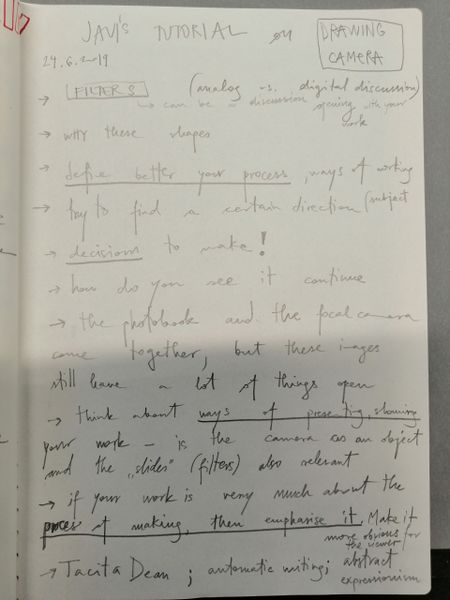 JAVI'S TUTORIAL on DRAWING CAMERA
24.6.2019
→ FILTERS (analog vs. digital discussion)
↳ can be a discussion opening with your work
→ why these shapes
→ define better your process, ways of working
→ try to find a certain direction (subject
→ decisions to make!
→ how do you see it continue
→ the photobook and the focal camera
come together, but these images
still leave a lot of things open
→ think about ways of presenting, showing
your work – is the camera as an object
and the „slides" (filters) also relevant
→ if your work is very much about the
process of making, then emphasise it. Make it
more obvious for the viewer
→ Tacita Dean ; automatic writing; abstract
expressionism